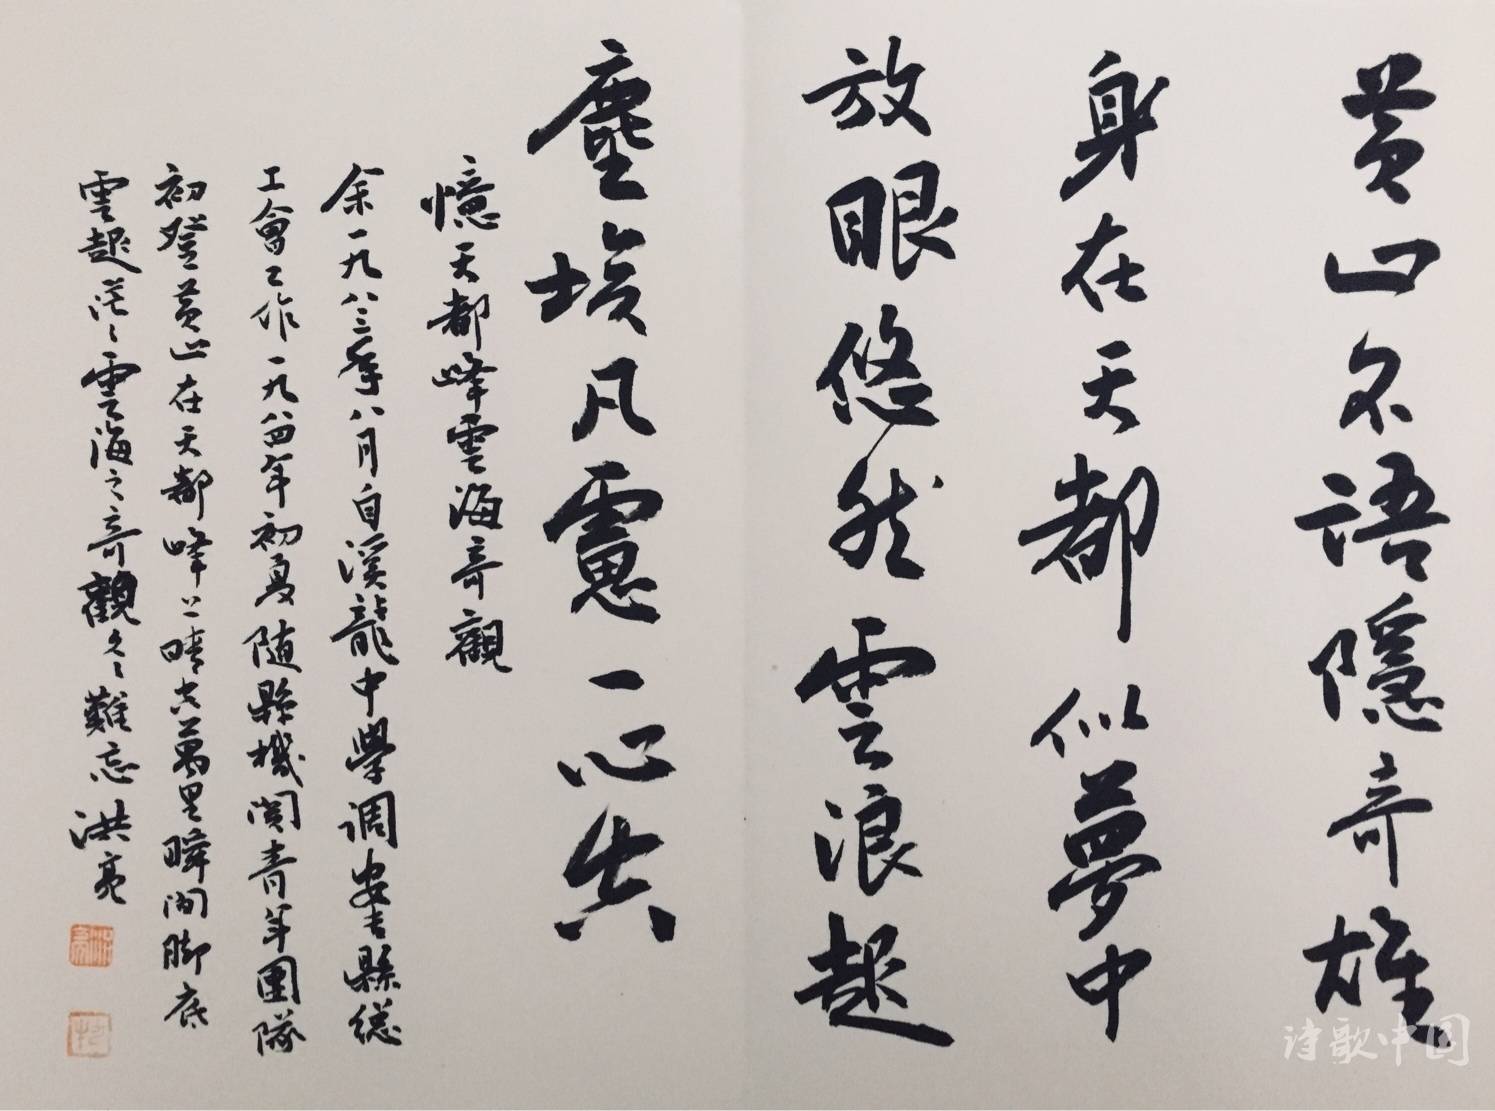 黄山不語隱奇雄
身在天都似夢中
放眼悠然雲浪起
塵埃凡慮一心空
憶天都峰雲海奇觀
余一九八三年八月自溪龍中學調安吉縣總
工會工作一九八四年初夏随縣機関青年團隊
初登黄山在天都峰上晴空萬里瞬間脚底
雲起茫々雲海之奇觀久々難忘洪亮
诗歌中国